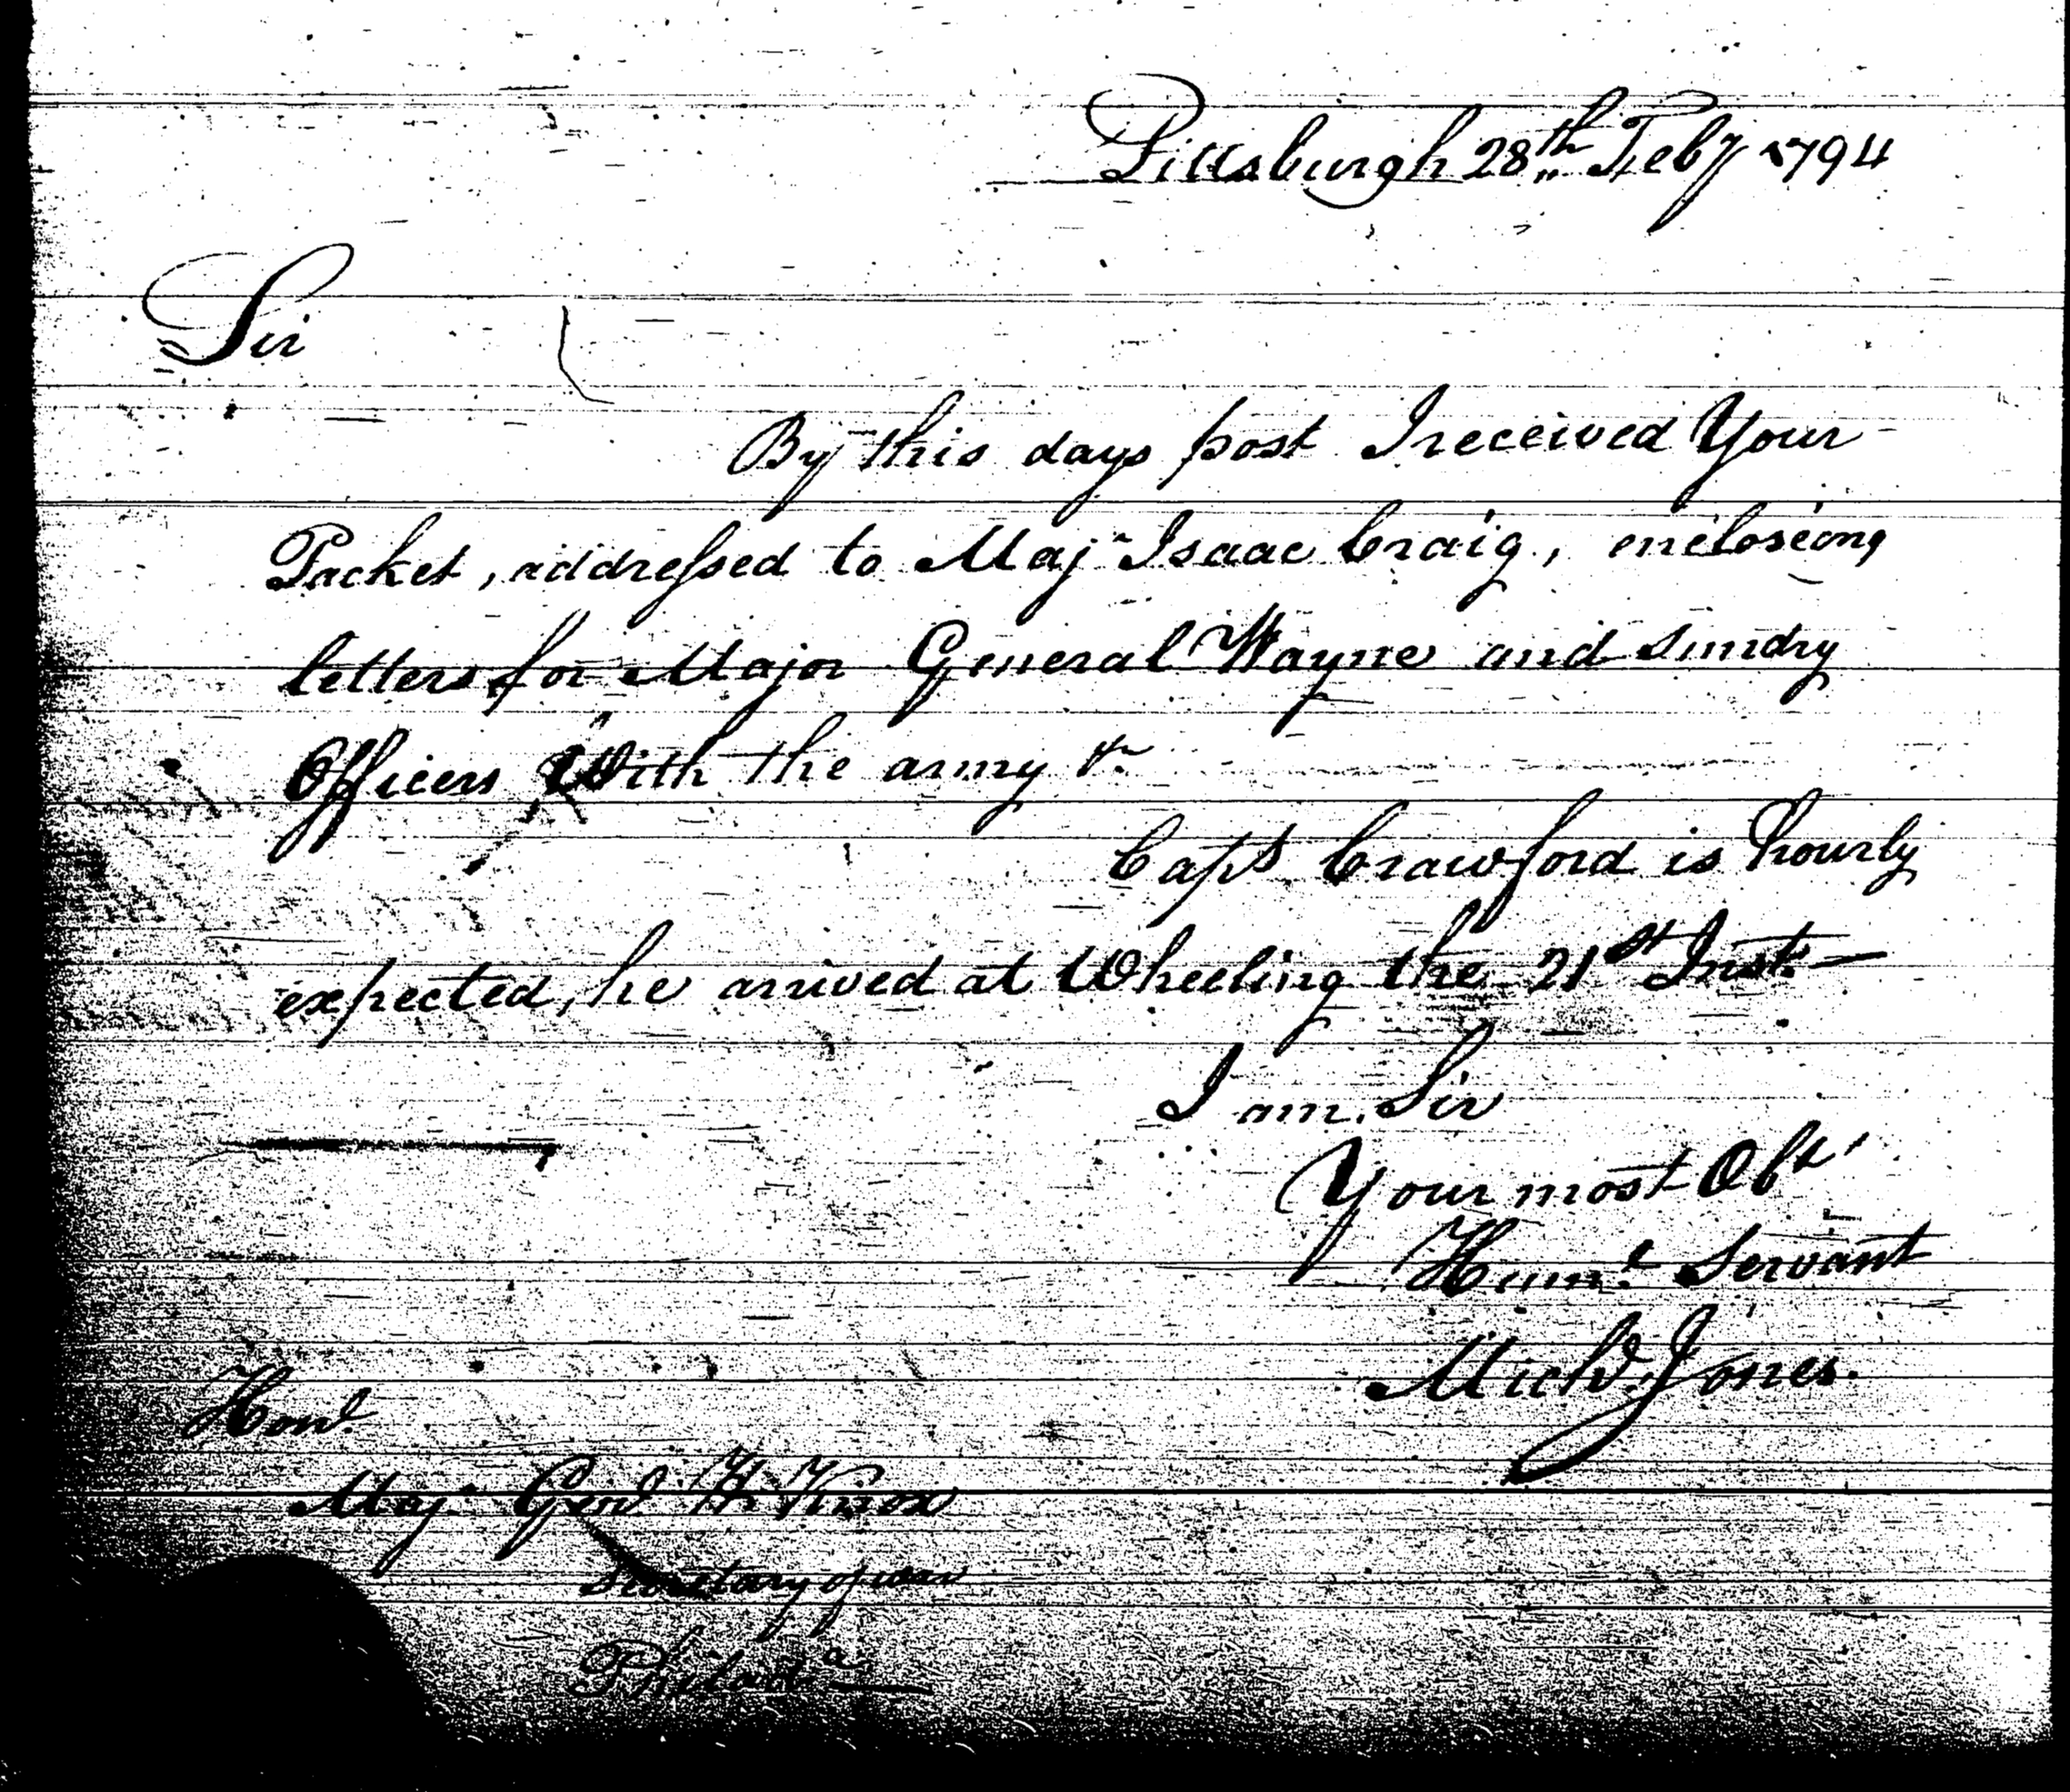 Pittsburgh 28th Feby 1794
Sir
By this days post I received Your
Packet, addressed to Majr Isaac Craig, encloseing
letters for Major General Wayne and sundry
Officers With the army &c
Capt Crawford is hourly
expected, he arrived at Wheeling the 21st Inst. —
I am Sir
Your most Obt
Humle Servant
Michl. Jones.
Honl
Majr Genl H Knox
Secretary of war
Philada